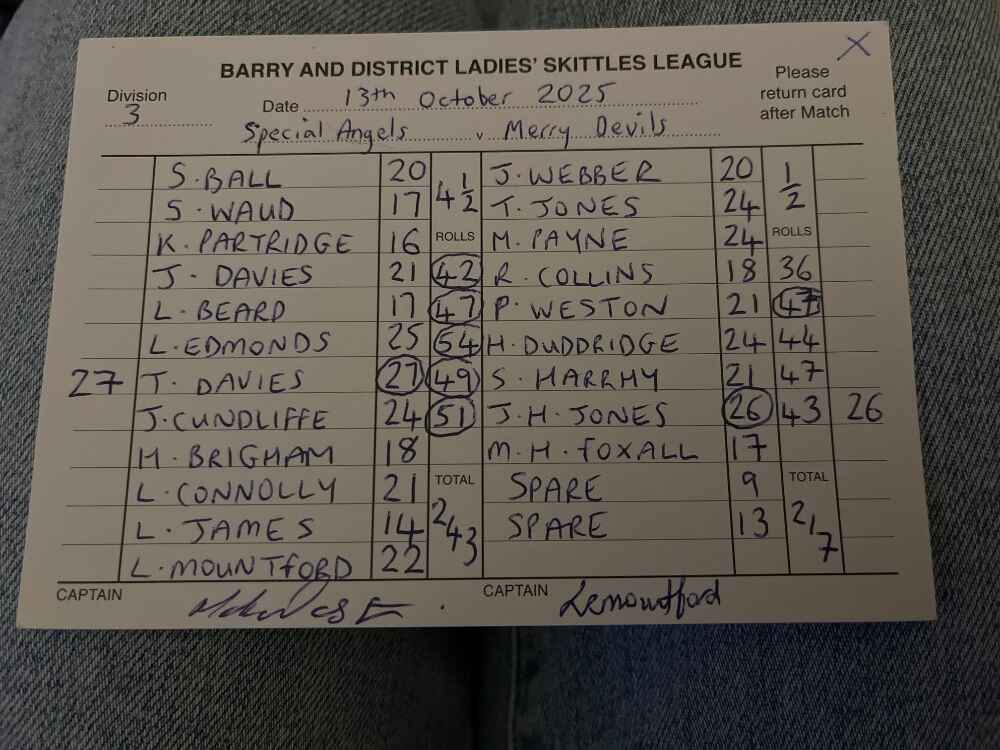 BARRY AND DISTRICT LADIES' SKITTLES LEAGUE
Please return card after Match
Division 3
Date 13th October 2025
Special Angels v Merry Devils
S. BALL 20 4½ J. WEBBER 20 ½
S. WAUD 17 T. JONES 24
K. PARTRIDGE 16 ROLLS M. PAYNE 24 ROLLS
J. DAVIES 21 42 R. COLLINS 18 36
L. BEARD 17 47 P. WESTON 21 47
L. EDMONDS 25 54 H. DUDDRIDGE 24 44
27 T. DAVIES 27 49 S. HARRHY 21 47
J. CUNDLIFFE 24 51 J. H. JONES 26 43 26
H. BRIGHAM 18 M. H. FOXALL 17
L. CONNOLLY 21 TOTAL SPARE 9 TOTAL
L. JAMES 14 243 SPARE 13 217
L. MOUNTFORD 22
CAPTAIN CAPTAIN Lemountford